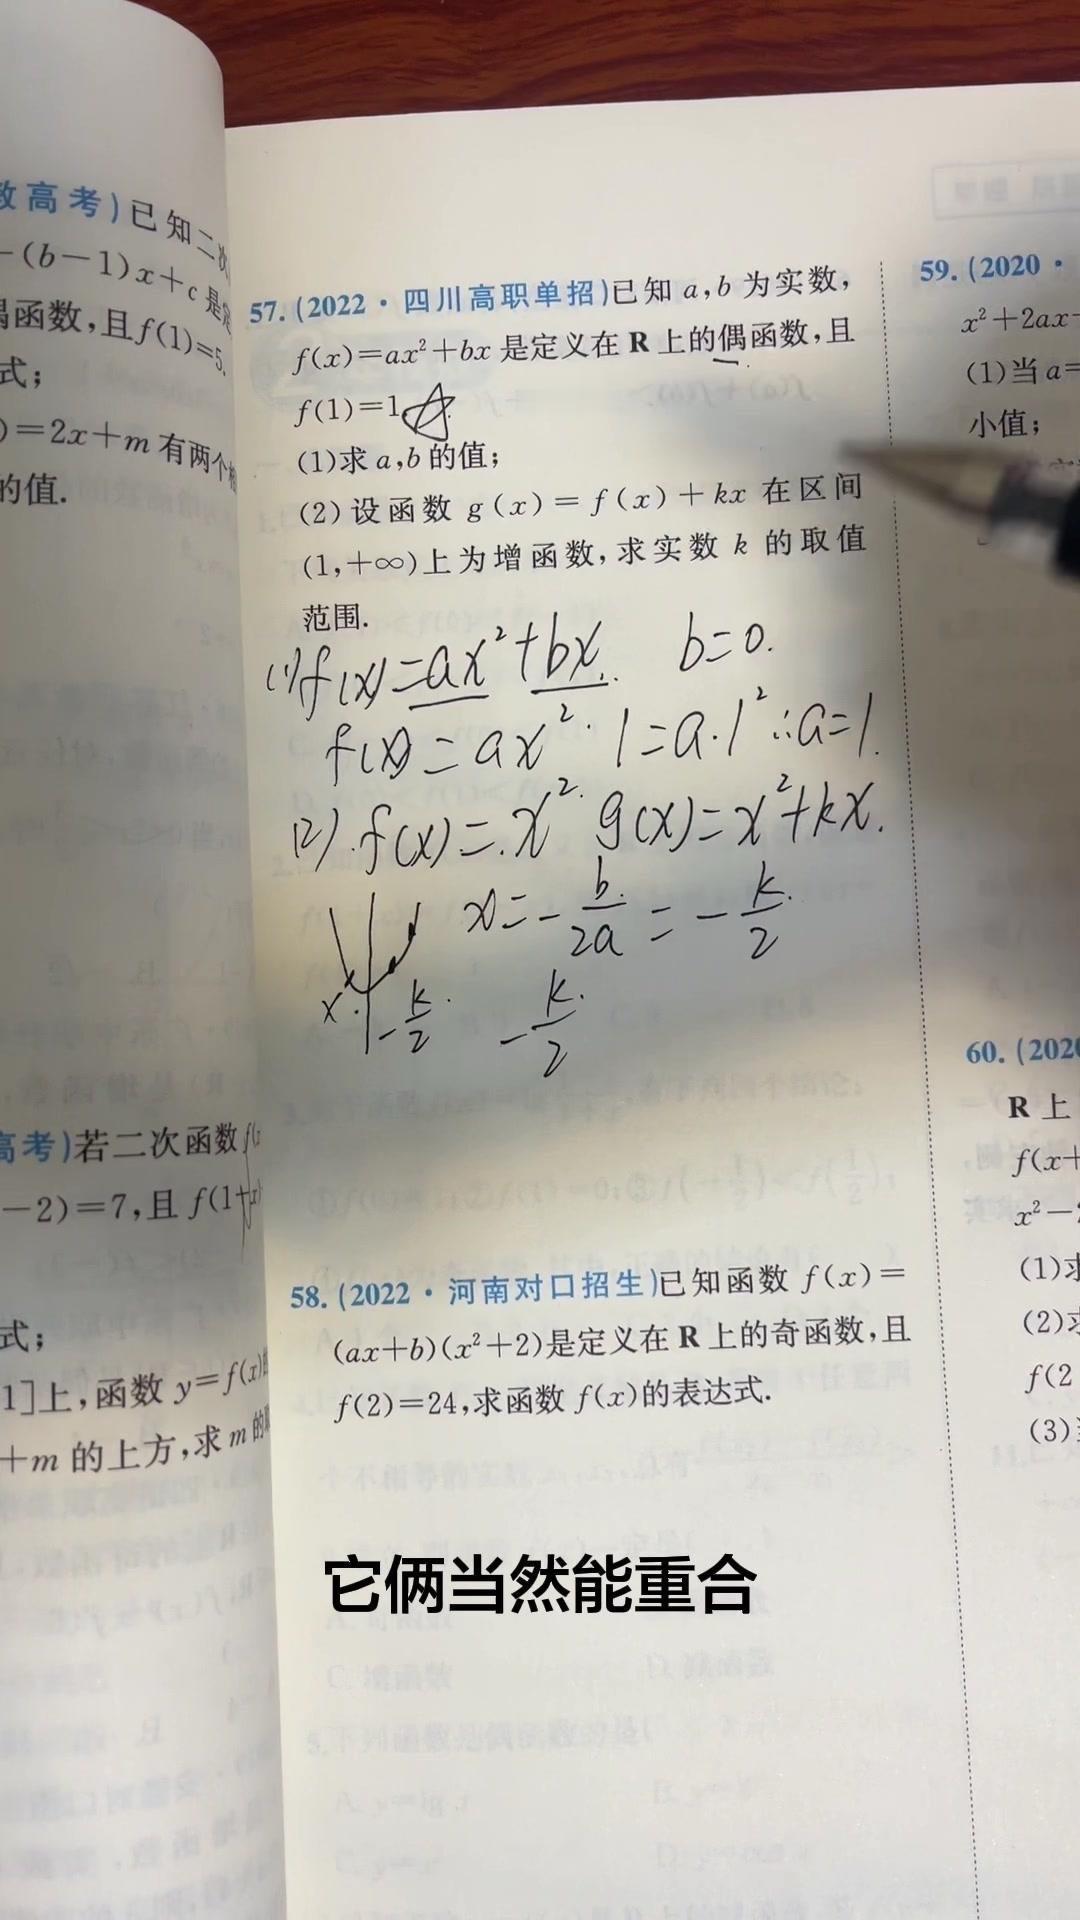 教高考)已知二次
-(b-1)x+c是定
偶函数,且f(1)=5.
式;
)=2x+m有两个相
的值.
高考)若二次函数f(x
-2)=7,且f(1+x)
式;
1]上,函数y=f(x)的
+m的上方,求m的取
57.(2022·四川高职单招)已知a,b为实数,
f(x)=ax²+bx是定义在R上的偶函数,且
f(1)=1.
(1)求a,b的值;
(2)设函数g(x)=f(x)+kx在区间
(1,+∞)上为增函数,求实数k的取值
范围.
(1)f(x)=ax²+bx. b=0.
f(x)=ax². 1=a·1² ∴a=1.
(2).f(x)=x². g(x)=x²+kx.
x=-b/2a=-k/2
x. -k/2. -k/2
58.(2022·河南对口招生)已知函数f(x)=
(ax+b)(x²+2)是定义在R上的奇函数,且
f(2)=24,求函数f(x)的表达式.
它俩当然能重合
59.(2020·
x²+2ax-
(1)当a=
小值;
60.(2020
R上
f(x+
x²-
(1)求
(2)求
f(2
(3)